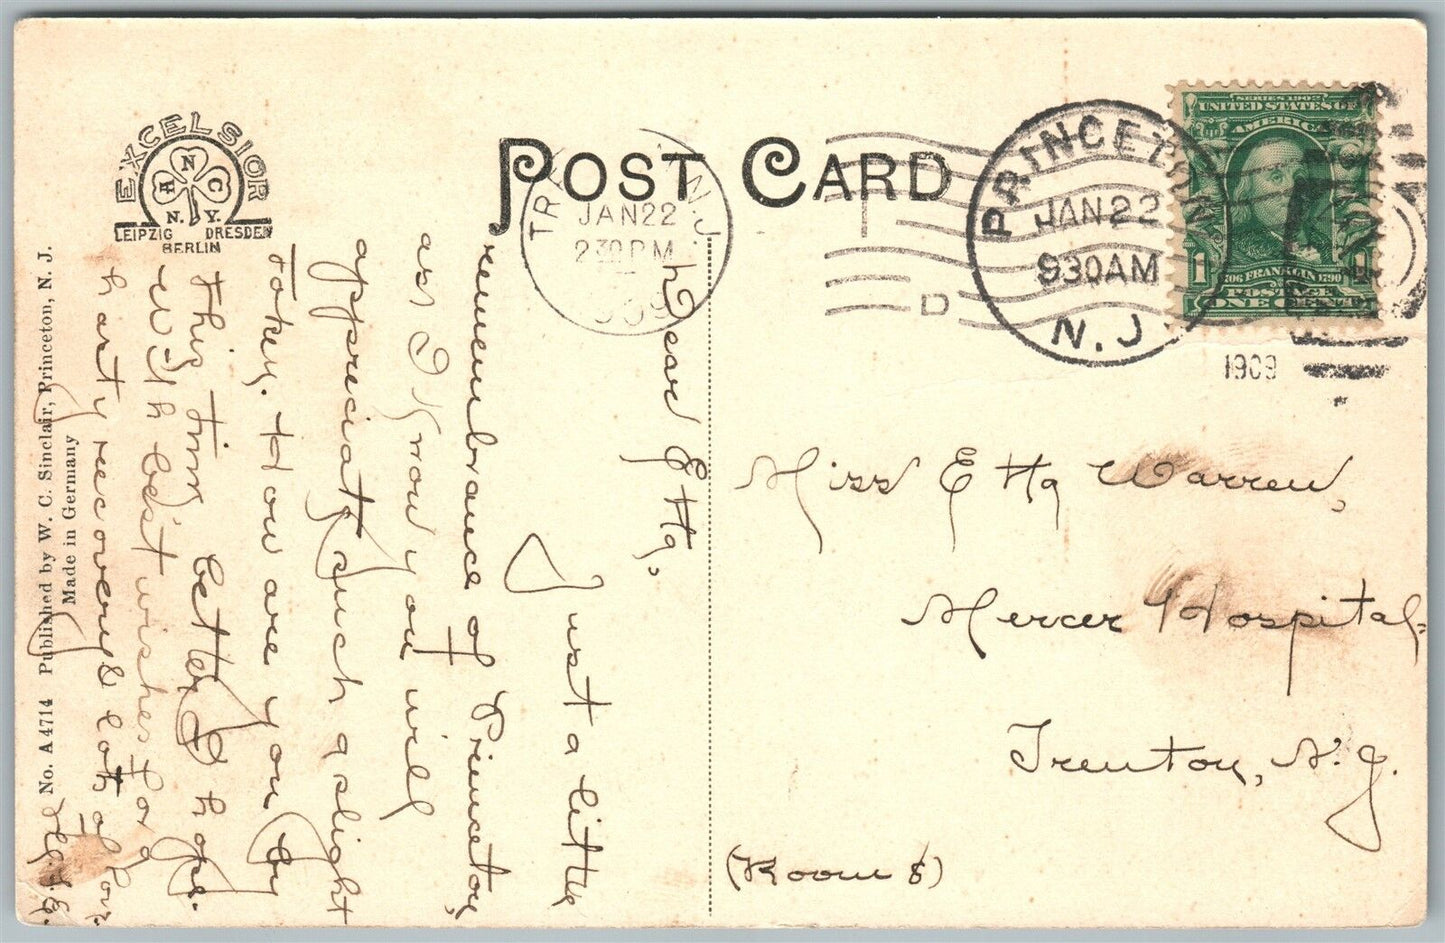 EXCELSIOR
A N C
N. Y.
LEIPZIG DRESDEN
BERLIN
POST CARD
N.J.
JAN 22
2 30 PM
D
PRINCETON
JAN 22
930AM
N.J.
1909
SERIES 1902
UNITED STATES OF
AMERICA
1
1706 FRANKLIN 1790
POSTAGE
ONE CENT
No. A 4714 Published by W. C. Sinclair, Princeton, N. J.
Made in Germany
Dear Etta,
Just a little
remembrance of Princeton,
as I know you will
appreciate such a slight
token. How are you by
this time better I hope.
With best wishes for a
hasty recovery & lots of love
Miss Etta Warren,
Mercer Hospital,
Trenton, N.J.
(Room 8)